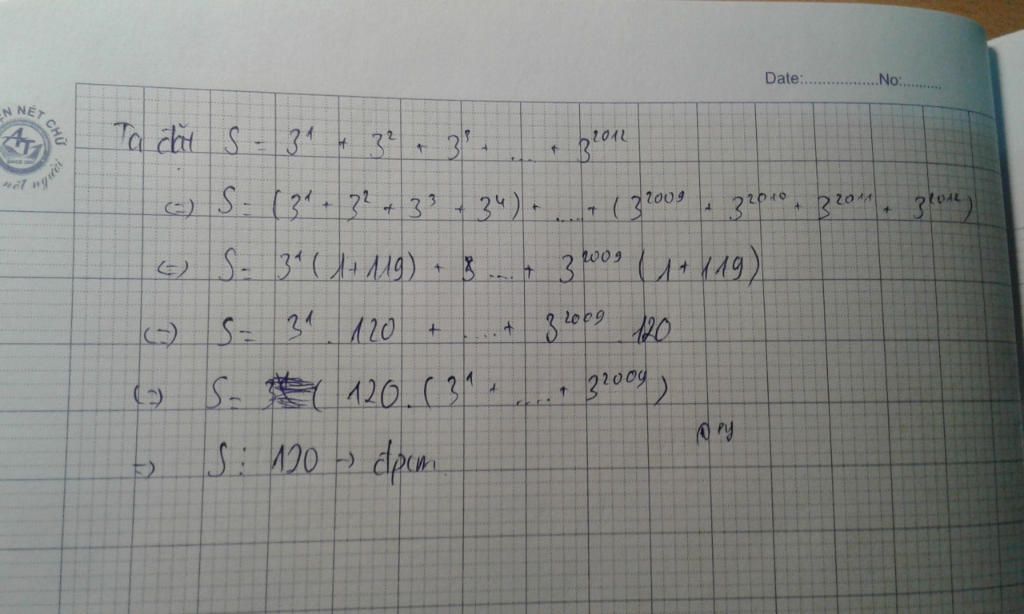 Date:.................No:...........
ỆN NÉT CHỮ
AT
nét người
Ta đặt S = 3¹ + 3² + 3³ + .... + 3²⁰¹²
(=) S = (3¹ + 3² + 3³ + 3⁴) + .... + (3²⁰⁰⁹ + 3²⁰¹⁰ + 3²⁰¹¹ + 3²⁰¹²)
(=) S = 3¹ (1+119) + .... + 3²⁰⁰⁹ (1+119)
(=) S = 3¹ . 120 + ....+ 3²⁰⁰⁹ . 120
(=) S = ( 120 . (3¹ + .... + 3²⁰⁰⁹)
=) S ⋮ 120 → đpcm